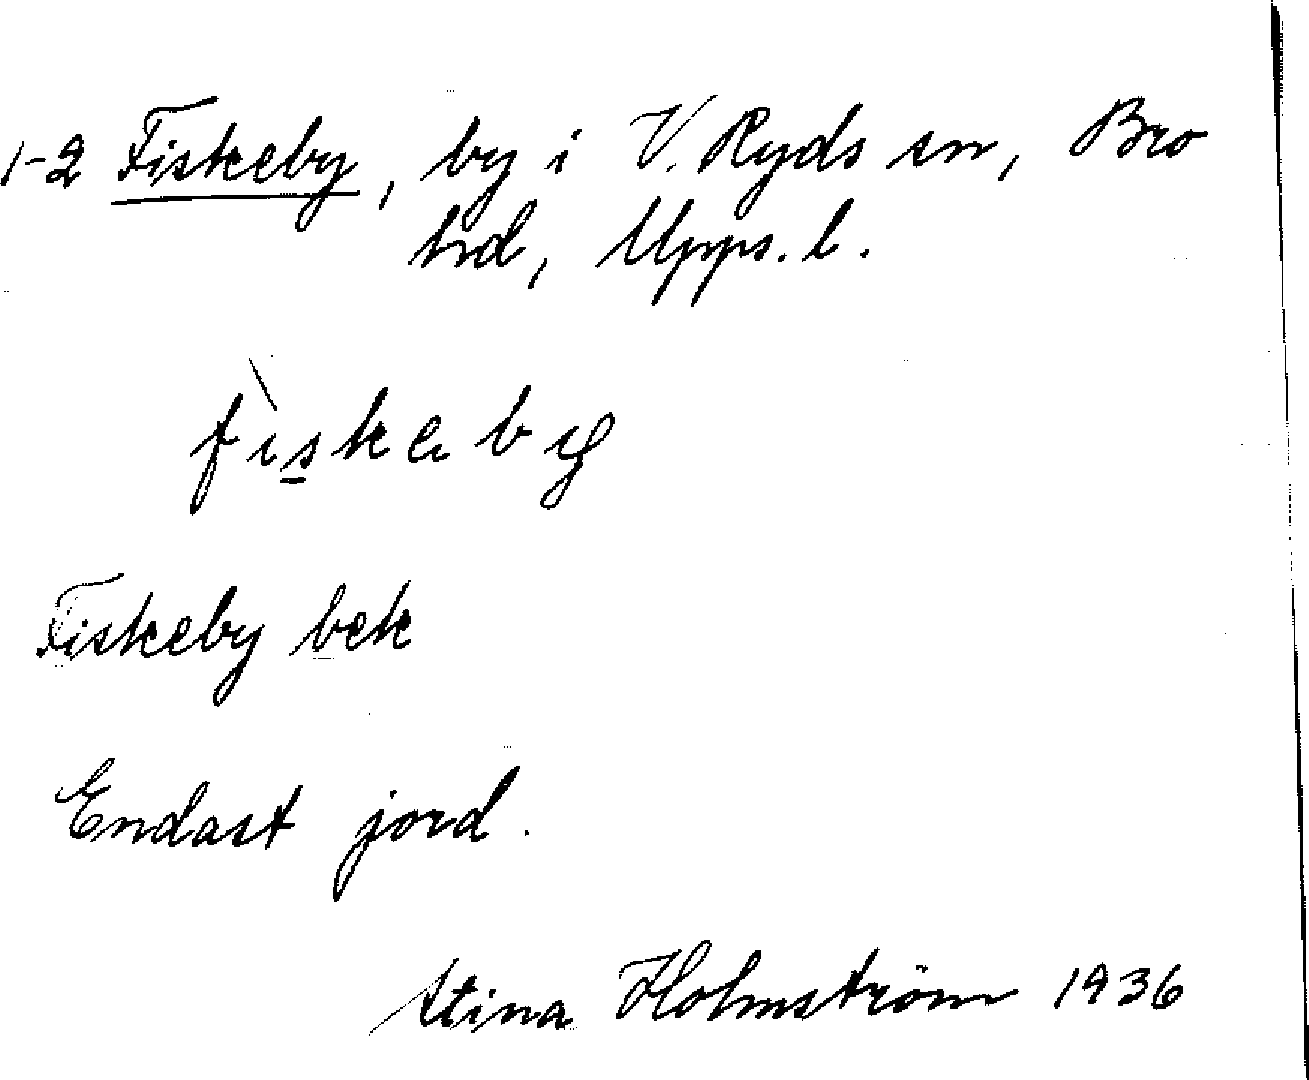 1-2 Fiskeby, by i V. Ryds sn, Bro
hd, Upps. l.
fìskeby
Fiskeby bek
Endast jord.
Stina Holmström 1936